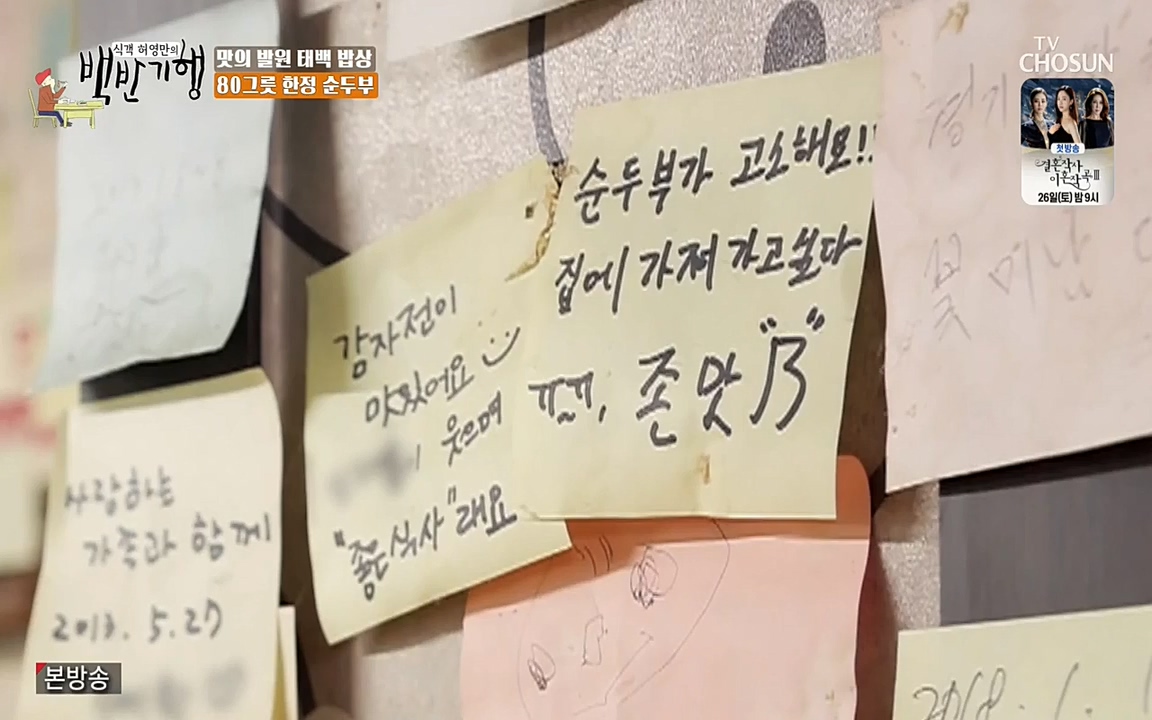 식객 허영만의
백반기행
맛의 발원 태백 밥상
80그릇 한정 순두부
TV
CHOSUN
첫방송
결혼작사
이혼작곡Ⅲ
26일(토) 밤 9시
순두부가 고소해요!!
집에 가져 가고싶다
ㅠ~ㅠ, 존 맛
감자전이
맛있어요
웃으며
"좋은식사"래요
사랑하는
가족과 함께
2013. 5. 27
꽃 미남
2018. 1.
본방송